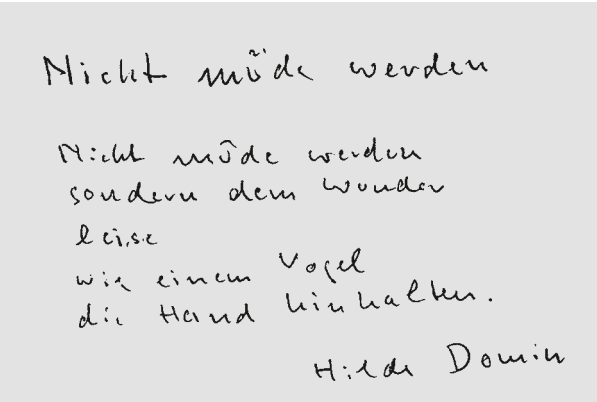 Nicht müde werden
Nicht müde werden
sondern dem Wunder
leise
wie einem Vogel
die Hand hinhalten.
Hilde Domin